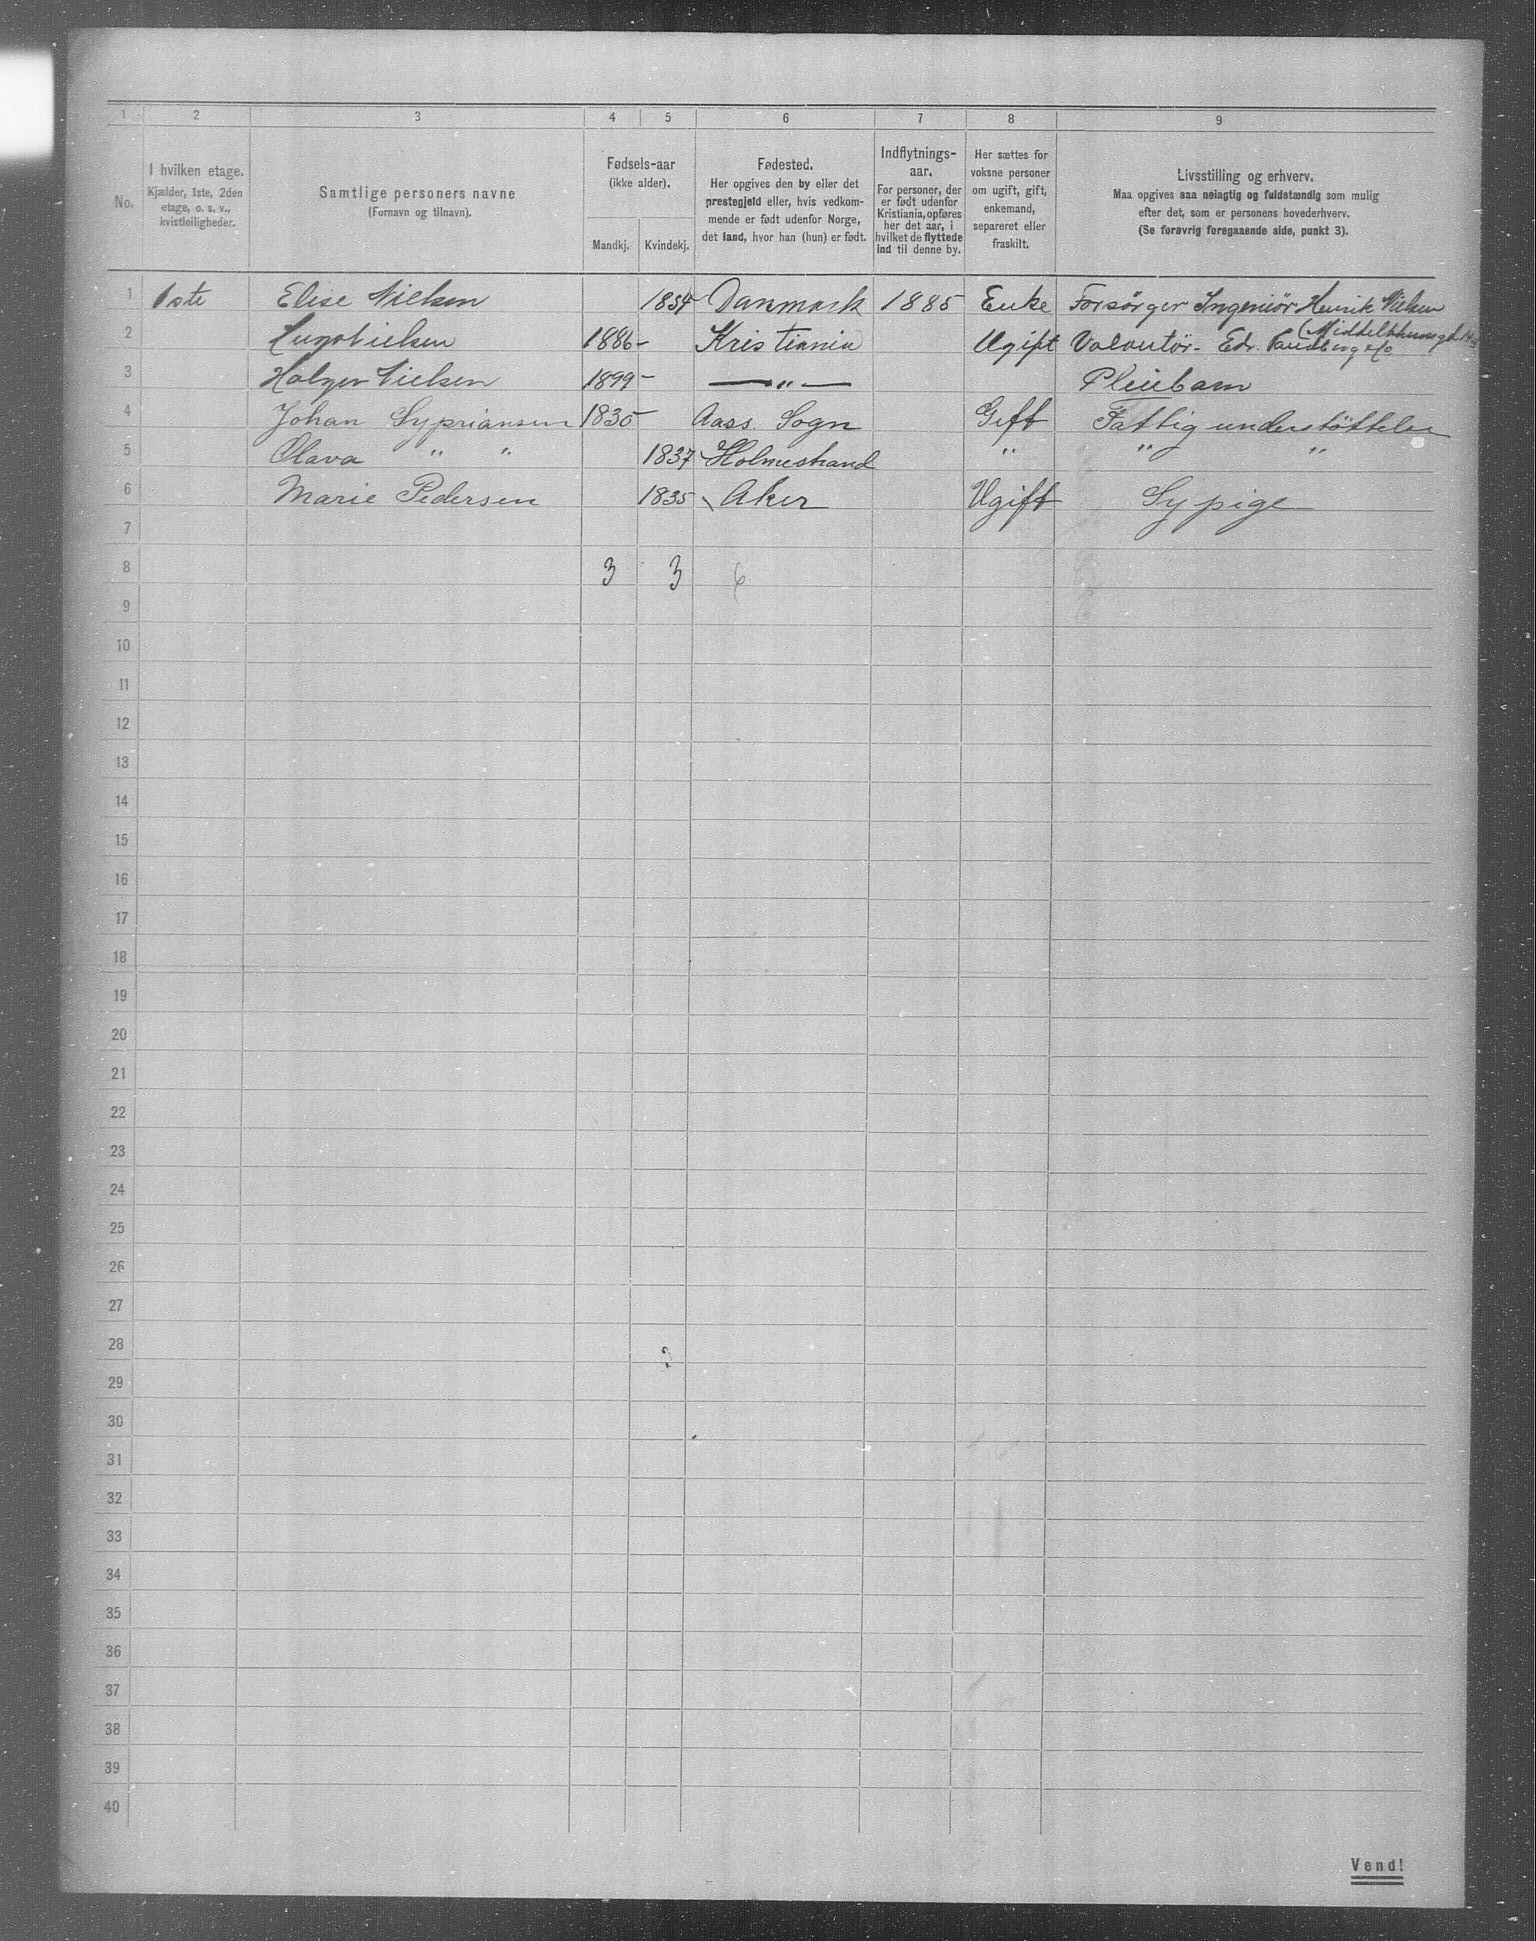 1 2 3 4 5 6 7 8 9
No.
I hvilken etage.
Kjælder, 1ste, 2den
etage, o. s. v.,
kvistleiligheder.
Samtlige personers navne
(Fornavn og tilnavn).
Fødsels-aar
(ikke alder).
Mandkj. Kvindekj.
Fødested.
Her opgives den by eller det
prestegjeld eller, hvis vedkom-
mende er født udenfor Norge,
det land, hvor han (hun) er født.
Indflytnings-
aar.
For personer, der
er født udenfor
Kristiania, opføres
her det aar, i
hvilket de flyttede
ind til denne by.
Her sættes for
voksne personer
om ugift, gift,
enkemand,
separeret eller
fraskilt.
Livsstilling og erhverv.
Maa opgives saa nøiagtig og fuldstændig som mulig
efter det, som er personens hovederhverv.
(Se forøvrig foregaaende side, punkt 3).
1 1ste Elise Nielsen 1854 Danmark 1885 Enke Forsørger Ingeniør Henrik Nielsen
2 Hugo Nielsen 1886- Kristiania Ugift Volontør. Edv.
3 Holger Nielsen 1899- — „ — Pleiebarn
4 Johan Sypriansen 1830- Aass. Sogn Gift Fattig understöttelse
5 Olava " " 1837 Holmestrand " " "
6 Marie Pedersen 1835 Aker Ugift Sypige
7
8 3 3 6
9
10
11
12
13
14
15
16
17
18
19
20
21
22
23
24
25
26
27
28
29
30
31
32
33
34
35
36
37
38
39
40
Vend!